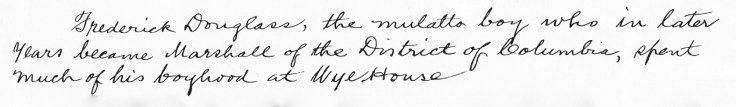 Frederick Douglass, the mulatto boy who in later
years became Marshall of the District of Columbia, spent
much of his boyhood at Wye House